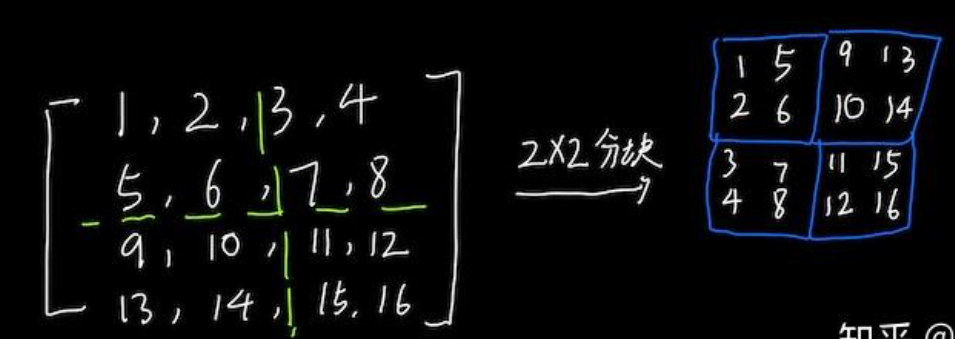 1, 2, 3, 4
5, 6, 7, 8
9, 10, 11, 12
13, 14, 15, 16
2X2分块
1 5 9 13
2 6 10 14
3 7 11 15
4 8 12 16
知乎 @